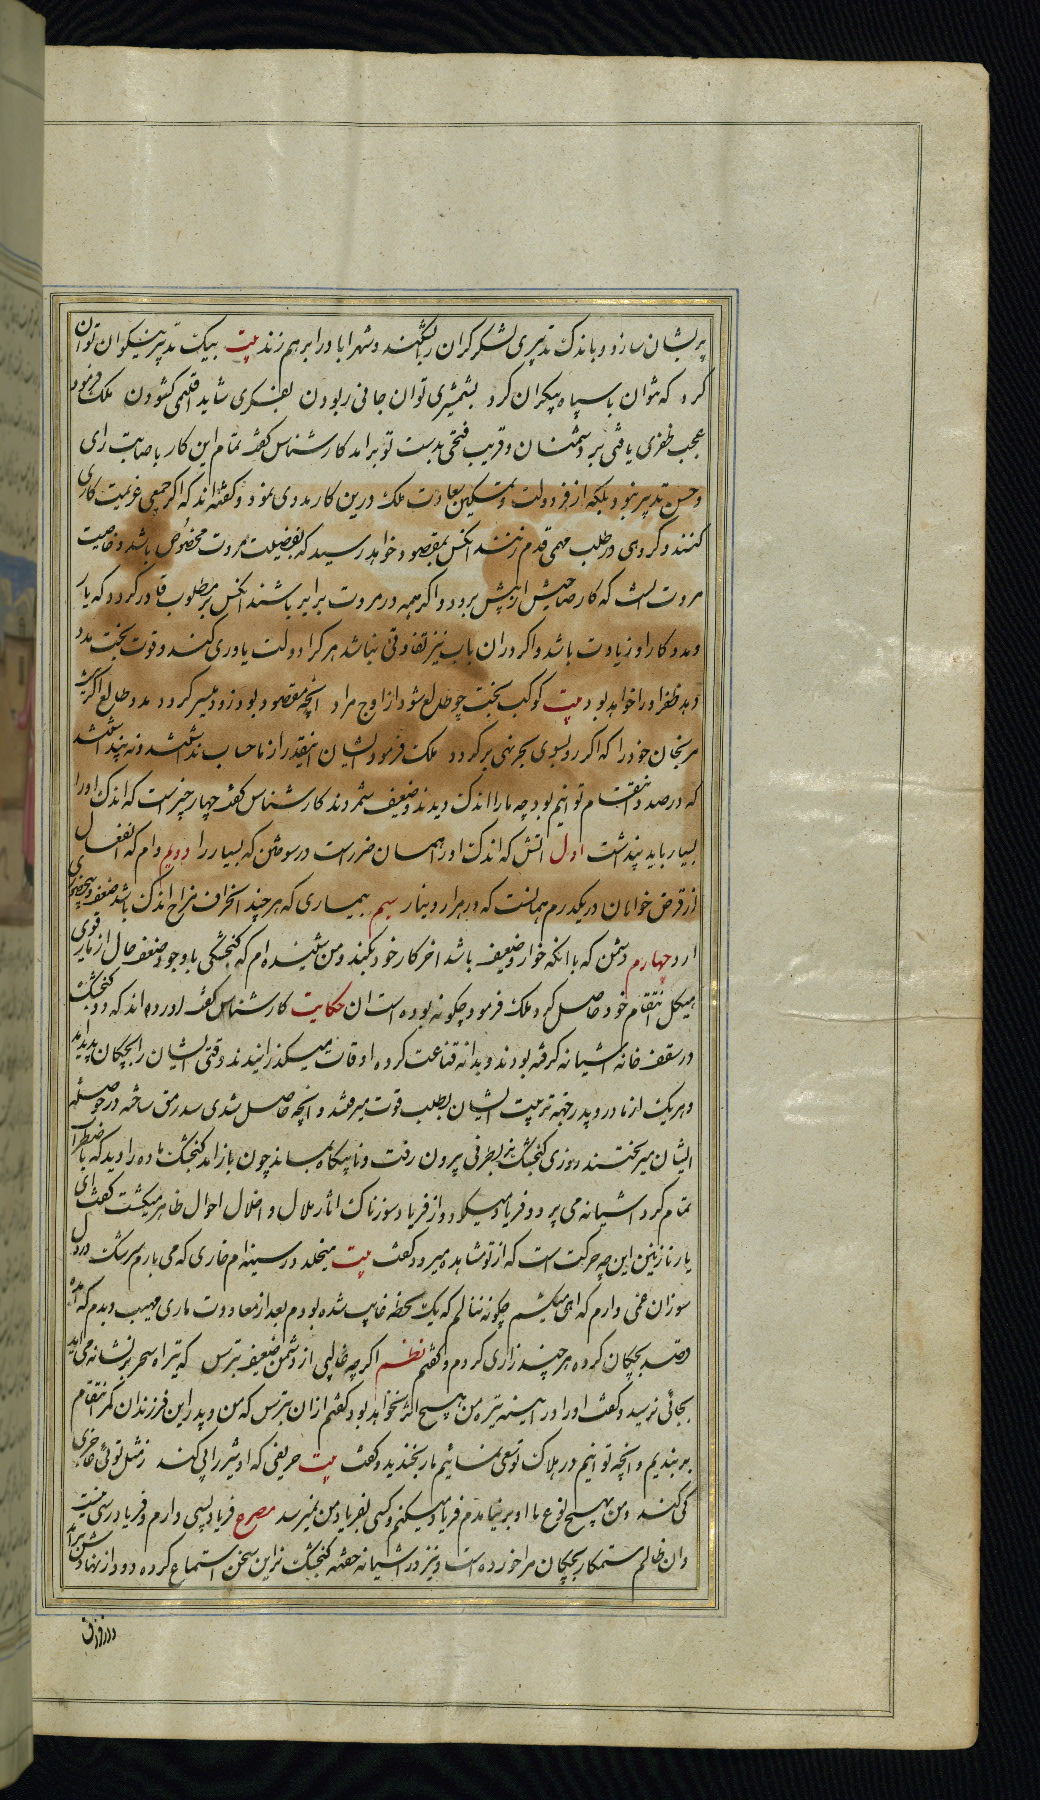 پریشان سازد و باندک تدبیری لشکر کران را بشکند و شهر اباد را بر هم زند بیت بیک تدبیر نیکو ان توان
کرد که نتوان با سپاه بیکران کرد بشمشیری توان جانی ربودن بفکری شاید اقلیمی کشودن ملک فرمود
عجب ظفری یافتی بر دشمنان و قریب فتحی بدست تو برامد کارشناس کفت تمام این کار باصابت رای
و حسن تدبیر نبود بلکه از فر دولت و سعادت ملک درین کار مددی نمود و کفته اند که اکر جمعی عزیمت کاری
کنند و کروهی در طلب مهمی قدم زنند انکس بمقصود خواهد رسید که بفضیلت مروت مخصوص باشد و خاصیت
مروت انست که کار صاحبش از پیش برود و اکر همه در مروت برابر باشند انکس بر مطلوب قادر کردد که یار
و مددکار او زیادت باشد و اکر در ان باب نیز تفاوتی نباشد هر کرا دولت یاوری کند و قوت بخت مدد
دهد ظفر او را خواهد بود بیت کوکب بخت چو طالع شود از اوج مراد انچه مقصود بود زود میسر کردد مدد طالع اکر
مر بجان خود را که اکر رو بسوی بحر نهی بر کردد ملک فرمود ایشان اینقدر از ما حساب نداشتند و نه پنداشتند
که در صدد انتقام توانیم بود چه ما را اندک دیدند و ضعیف شمردند کارشناس کفت چهار چیز است که اندک او را
بسیار باید پنداشت اول اتش که اندک او را همان ضررست در سوختن که بسیار را دویم وام که انفعال
از قرض خواهان در یکدرم همانست که در هزار دینار سیم بیماری که هر چند انحراف مزاج اندک باشد ضعف و بیحضوری
ارد چهارم دشمن که با انکه خوار و ضعیف باشد اخر کار خود بکند و من شنیده ام که کنجشکی با وجود ضعف حال از مار قوی
هیکل انتقام خود حاصل کرد ملک فرمود چکونه بوده است ان حکایت کارشناس کفت اورده اند که دو کنجشک
در سقف خانه اشیانه کرفته بودند و بدانه قناعت کرده اوقات میکذرانیدند وقتی ایشان را بچکان پدید امد
و هر یک از مادر و پدر جهته تربیت ایشان بطلب قوت میرفتند و انچه حاصل شدی سد رمق ساخته در حوصله
ایشان میریختند روزی کنجشک نر بطرفی بیرون رفت و تا بیکاه بماند چون باز امد کنجشک ماده را دید که باضطراب
تمام کرد اشیانه می پرد و فریاد میکند و از فریاد سوزناک اثار ملال و اختلال احوال ظاهر میکشت کفت ای
یار نازنین این چه حرکت است که از تو مشاهده میرود کفت بیت میخلد در سینه ام خاری که می بارم سرشک در دل
سوزان غمی دارم که اهی میکشم چکونه ننالم که یک لحظه غایب شده بودم بعد از معاودت ماری مهیب دیدم که امده
و قصد بچکان کرده هر چند زاری کردم و کفتم نظم اکر چه غالبی از دشمن ضعیف بترس که تیر اه سحر بر نشانه می اید
بجائی نرسید و کفت اه را در اینه تیره من هیچ اثر نخواهد بود کفتم از ان بترس که من و پدر این فرزندان کمر انتقام
بر بندیم و انچه توانیم در هلاک تو سعی نمائیم مار بخندید و کفت بیت حریفی که او شیر را پی کند ز مثل توئی عاجزی
کی کند و من بهیچ نوع با او بر نیامدم فریاد میکنم و کسی بفریاد من نمیرسد مصرع فریاد بسی دارم و فریادرسی نیست
و ان ظالم ستمکار بچکان مرا خورده است و نیز در اشیانه خفته کنجشک نر این سخن استماع کرده دود از نهادش برامد